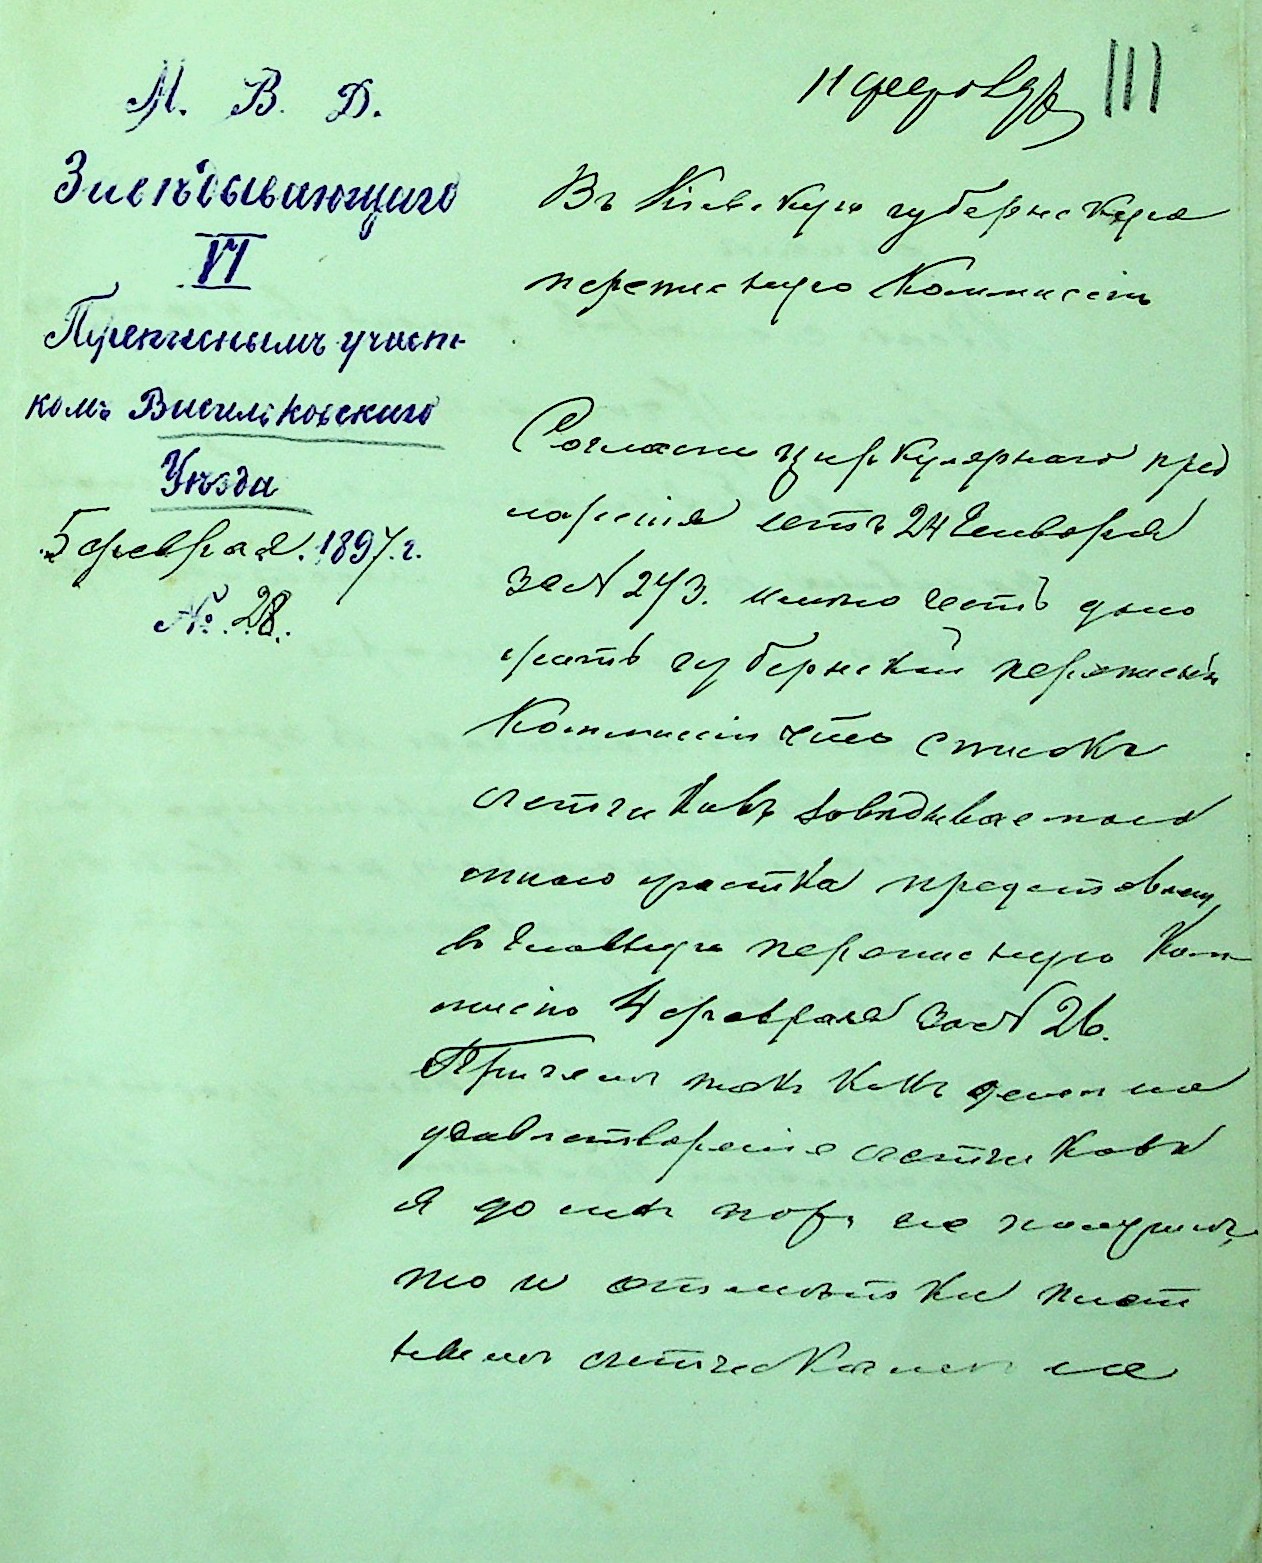 М. В. Д.
Завѣдывающаго
VI
Переписнымъ участ-
комъ Васильковскаго
Уѣзда
5 февраля. 1897. г.
№. 28.
11 февраля
111
Въ Кіевскую губернскую
переписную Коммисію
Согласно циркулярнаго пред
ложенія отъ 24 Генваря
за № 273. имѣю честь доно
сить губернской переписной
Коммисіи что списокъ
счетчиковъ завѣдываемаго
мною участка представленъ
въ Главную переписную Ком-
мисію 4 февраля за № 26.
Причемъ такъ какъ денегъ на
удовлетвореніе счетчиковъ
я до сихъ поръ не получилъ,
то и отмѣтки
счетчикамъ не